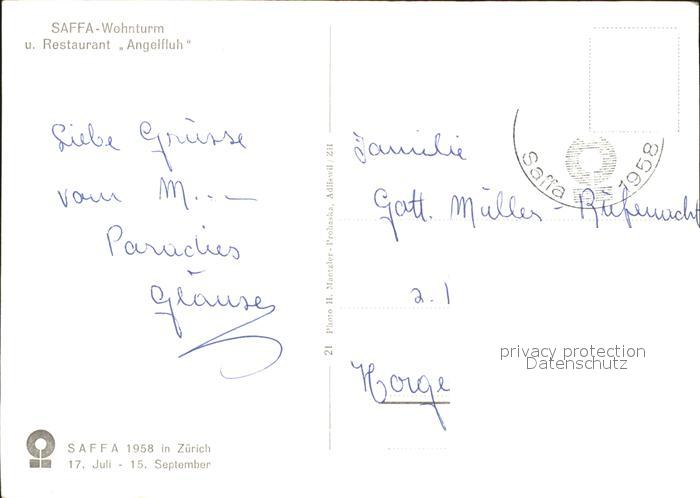 SAFFA-Wohnturm
u. Restaurant „Angelfluh"
Liebe Grüsse
vom M...–
Paradies
Familie
Müller - Rüfenacht
Saffa 1958
z. 1
Horge
privacy protection
Datenschutz
21 Photo H. Mantzler-Prohaska, Adliswil / ZH
SAFFA 1958 in Zürich
17. Juli - 15. September